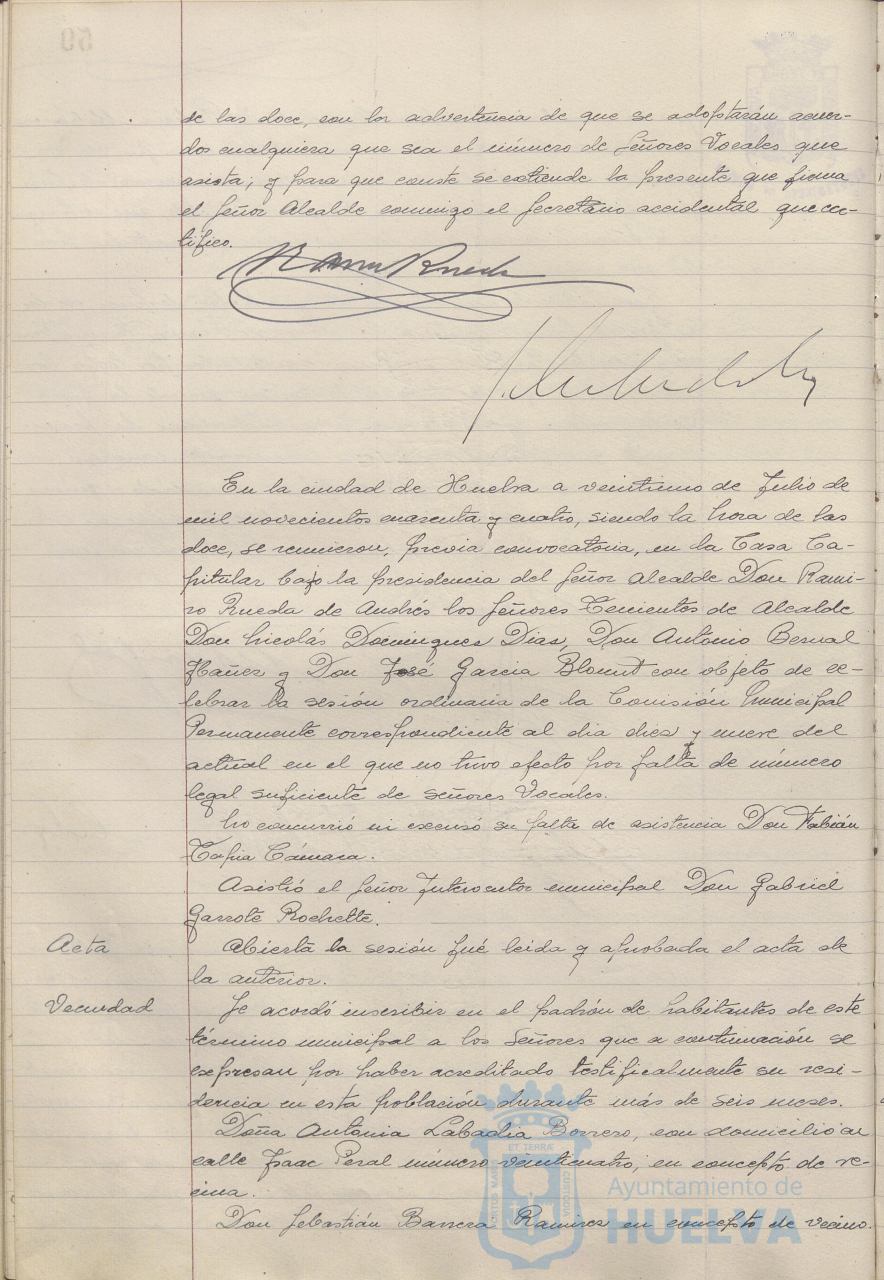 de las doce, con la advertencia de que se adoptarán acuer-
dos cualquiera que sea el número de Señores Vocales que
asista, y para que conste se extiende la presente que firma
el Señor Alcalde conmigo el Secretario accidental que cer-
tifico.
Ramiro Rueda
En la ciudad de Huelva a veintiuno de Julio de
mil novecientos cuarenta y cuatro, siendo la hora de las
doce, se reunieron, previa convocatoria, en la Casa Ca-
pitular bajo la presidencia del Señor Alcalde Don Rami-
ro Rueda de Andrés los Señores Tenientes de Alcalde
Don Nicolás Domínguez Diaz, Don Antonio Bernal
Ybañez y Don José Garcia Blount con objeto de ce-
lebrar la sesión ordinaria de la Comisión Municipal
Permanente correspondiente al dia diez y nueve del
actual en el que no tuvo efecto por falta de número
legal suficiente de señores Vocales.
No concurrió ni excusó su falta de asistencia Don Fabián
Tapia Cámara.
Asistió el Señor Interventor municipal Don Gabriel
Garrote Rochette.
Acta
Abierta la sesión fué leida y aprobada el acta de
la anterior.
Vecindad
Se acordó inscribir en el padrón de habitantes de este
término municipal a los Señores que a continuación se
expresan por haber acreditado testificalmente su resi-
dencia en esta población durante más de seis meses.
Doña Antonia Labadia Borrero, con domicilio en
calle Isaac Peral número veinticuatro, en concepto de ve-
cina.
Don Sebastián Barrera Ramirez en concepto de vecino.
Ayuntamiento de
HUELVA